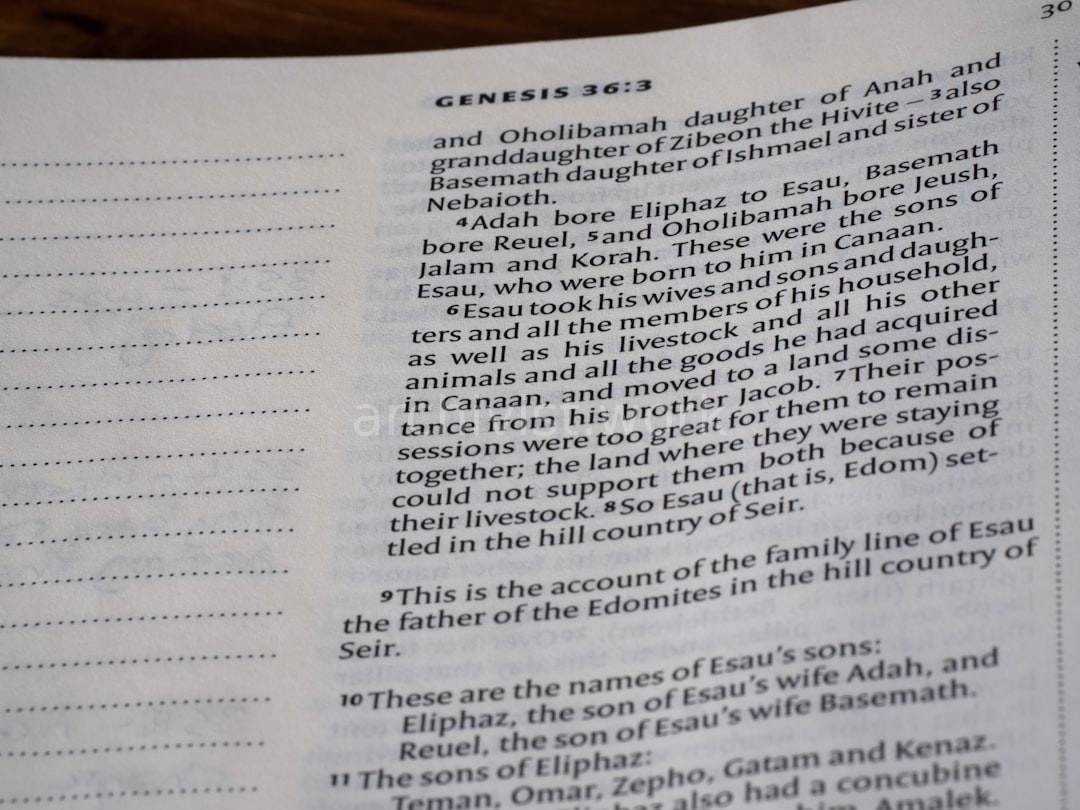 30
GENESIS 36:3
and Oholibamah daughter of Anah and
granddaughter of Zibeon the Hivite – 3 also
Basemath daughter of Ishmael and sister of
Nebaioth.
4 Adah bore Eliphaz to Esau, Basemath
bore Reuel, 5 and Oholibamah bore Jeush,
Jalam and Korah. These were the sons of
Esau, who were born to him in Canaan.
6 Esau took his wives and sons and daugh-
ters and all the members of his household,
as well as his livestock and all his other
animals and all the goods he had acquired
in Canaan, and moved to a land some dis-
tance from his brother Jacob. 7 Their pos-
sessions were too great for them to remain
together; the land where they were staying
could not support them both because of
their livestock. 8 So Esau (that is, Edom) set-
tled in the hill country of Seir.
9 This is the account of the family line of Esau
the father of the Edomites in the hill country of
Seir.
10 These are the names of Esau's sons:
Eliphaz, the son of Esau's wife Adah, and
Reuel, the son of Esau's wife Basemath.
11 The sons of Eliphaz:
Teman, Omar, Zepho, Gatam and Kenaz.
also had a concubine
him Amalek.